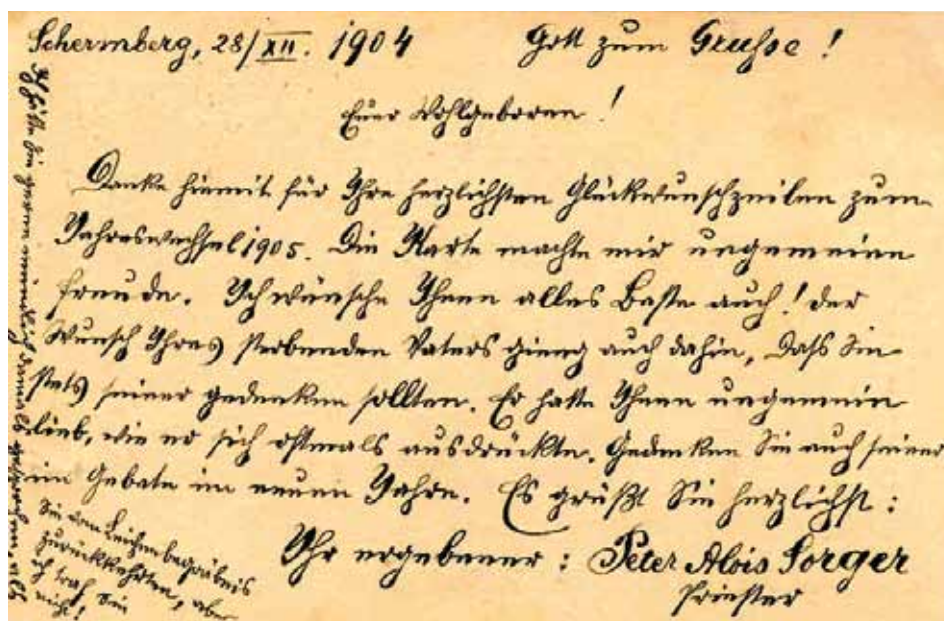 Schermberg, 28/XII. 1904 Gott zum Grusse!
Euer Wohlgeboren!
Danke hiemit für Ihre herzlichsten Glückwunschzeilen zum
Jahreswechsel 1905. Die Karte machte mir ungemeine
Freude. Ich wünsche Ihnen alles Beste auch! Der
Wunsch Ihres sterbenden Vaters gieng auch dahin, dass Sie
stets seiner gedenken sollten. Er hatte Ihnen ungemein
lieb, wie er sich oftmals ausdrückte. Gedenken Sie auch seiner
im Gebete im neuen Jahre. Es grüßt Sie herzlichst:
Ihr ergebener: Peter Alois Sorger
Priester
Ich hätte Sie gerne damals gesprochen als
Sie vom Leichenbegräbnis
zurückkehrten, aber
ich traf Sie
nicht!